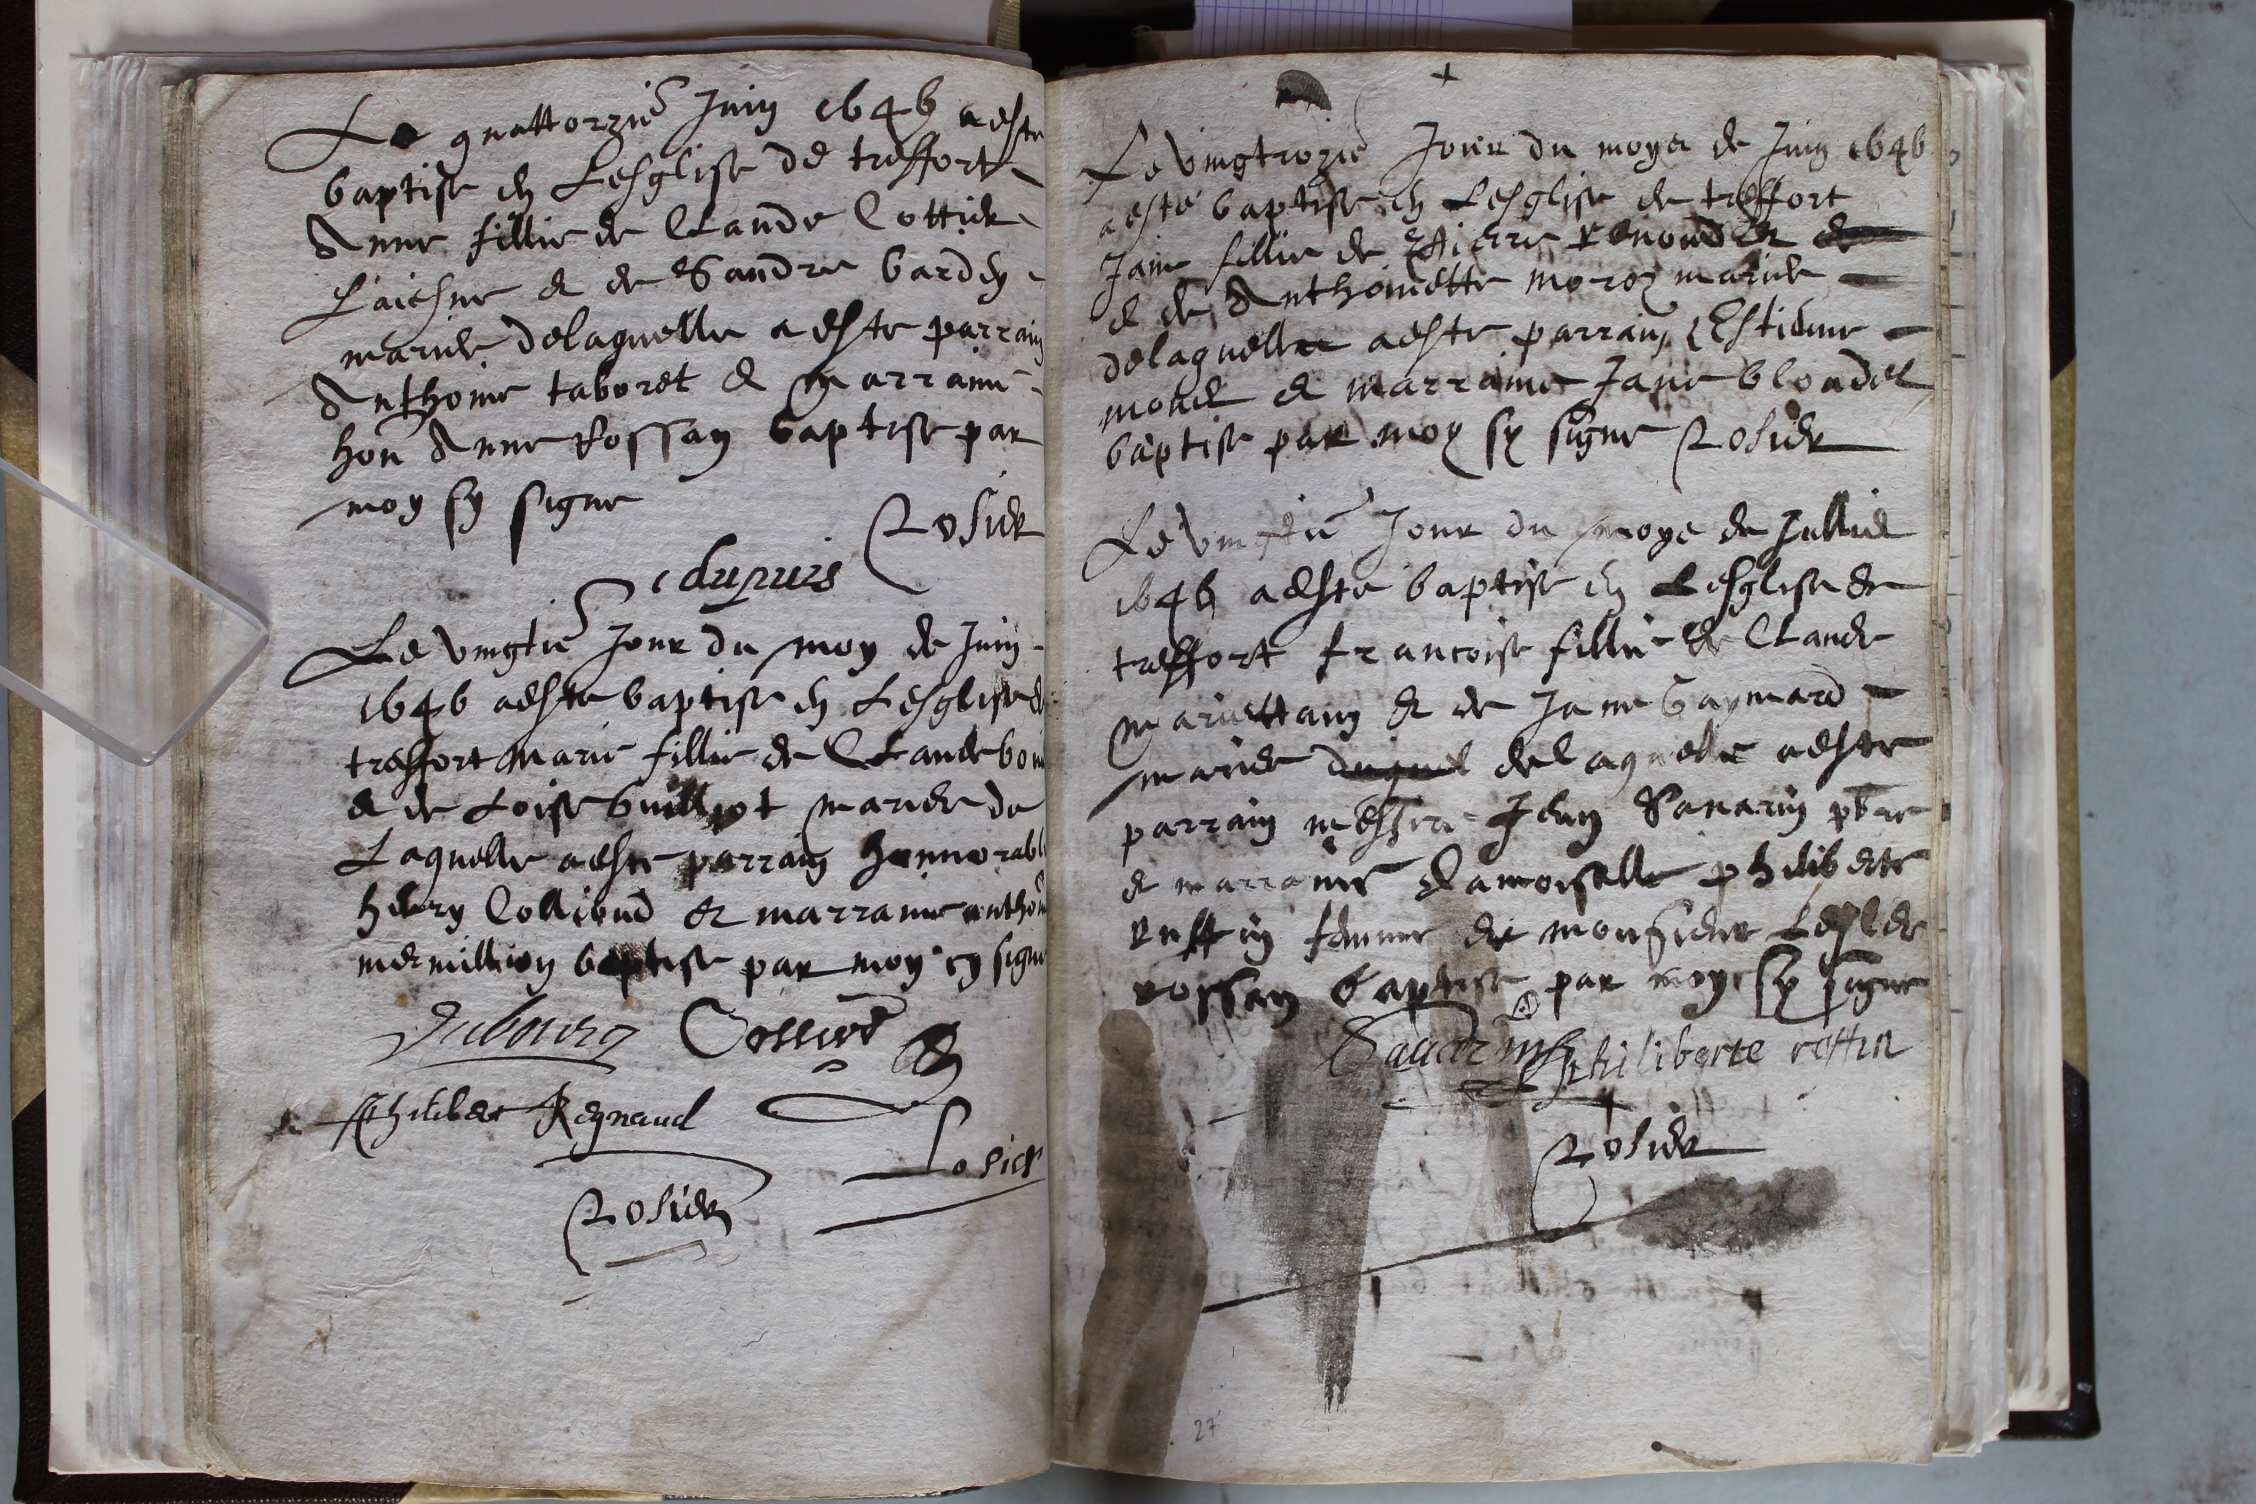 Le quattorzie Juin 1646 a este
baptise en Lesglise de treffort
Anne fillie de Claude Cottier
Laisne et de Sandre bardey
mariee delaquelle a este parrain
Anthoine taboret et marraine
hon Anne Rossan baptise par
moy sy signe
Rosier
dupuis
Le vingtie Jour du moy de Juin
1646 a este baptise en Lesglise de
treffort Marie fillie de Claude
et de Loise Guilliot mariee de
Laquelle a este parrain honnorable
henry et marraine
mermillion baptise par moy cy signe
Dubourg
Philibert Regnaud
Rosier
Rosier
Le vingtrozie Jour du moye de Juin 1646
a este baptise en Lesglise de treffort
Jaine fillie de Pierre
et de Anthoinette moroz mariee
delaquelle a este parrain Estienne
et marraine Jane blondel
baptise par moy sy signe Rosier
Le Jour du moye de Jullie
1646 a este baptise en Lesglise de
treffort francoise fillie de Claude
mariettain et de Jaine Gaymard
mariee delaquelle a este
parrain messire Jean Savarin pbre
et marraine damoiselle philiberte
Ruffin femme de monsieur
rossan baptise par moy sy signe
Savarin philiberte roffin
Rosier
27